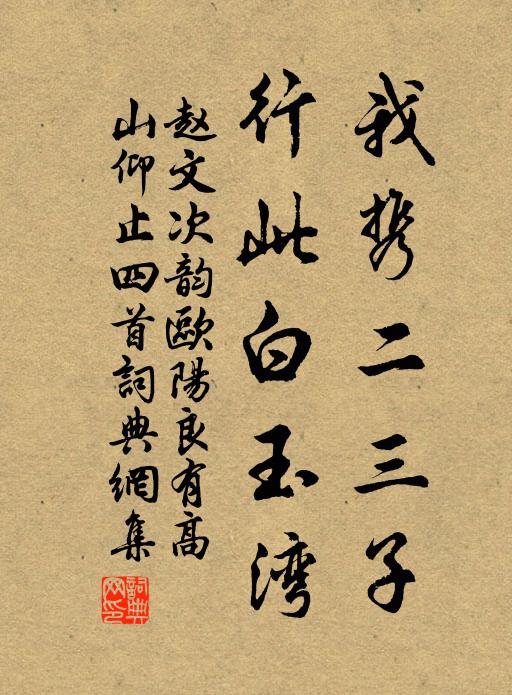 我携二三子
行此白玉湾
赵文次韵歐陽良有高
山仰止四首詞典網集
詞典網印